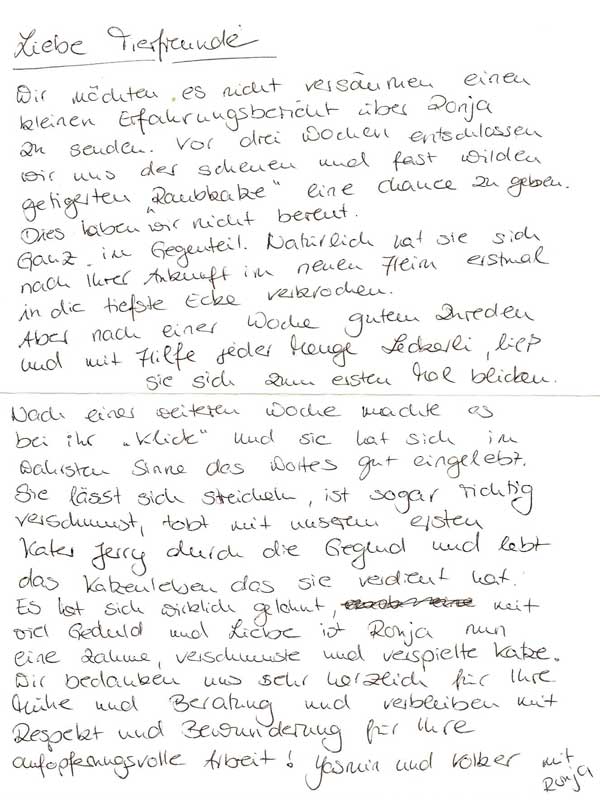 Liebe Tierfreunde
Wir möchten es nicht versäumen einen
kleinen Erfahrungsbericht über Ronja
zu senden. Vor drei Wochen entschlossen
wir uns der scheuen und fast wilden
getigerten „Raubkatze" eine Chance zu geben.
Dies haben wir nicht bereut.
Ganz im Gegenteil. Natürlich hat sie sich
nach Ihrer Ankunft im neuen Heim erstmal
in die tiefste Ecke verkrochen.
Aber nach einer Woche gutem Zureden
und mit Hilfe jeder Menge Leckerli, ließ
sie sich zum ersten Mal blicken.
Nach einer weiteren Woche machte es
bei ihr „Klick" und sie hat sich im
wahrsten Sinne des Wortes gut eingelebt.
Sie lässt sich streicheln, ist sogar richtig
verschmust, tobt mit unserem ersten
Kater Jerry durch die Gegend und lebt
das Katzenleben das sie verdient hat.
Es hat sich wirklich gelohnt, mit
viel Geduld und Liebe ist Ronja nun
eine zahme, verschmuste und verspielte Katze.
Wir bedanken uns sehr herzlich für Ihre
Mühe und Beratung und verbleiben mit
Respekt und Bewunderung für Ihre
aufopferungsvolle Arbeit! Yasmin und Volker mit
Ronja